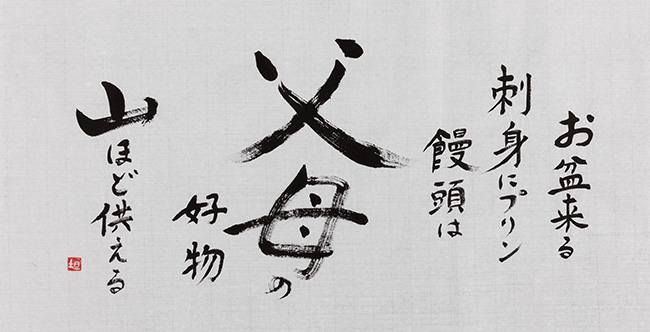 お盆来る
刺身にプリン
饅頭は
父母の
好物
山ほど供える